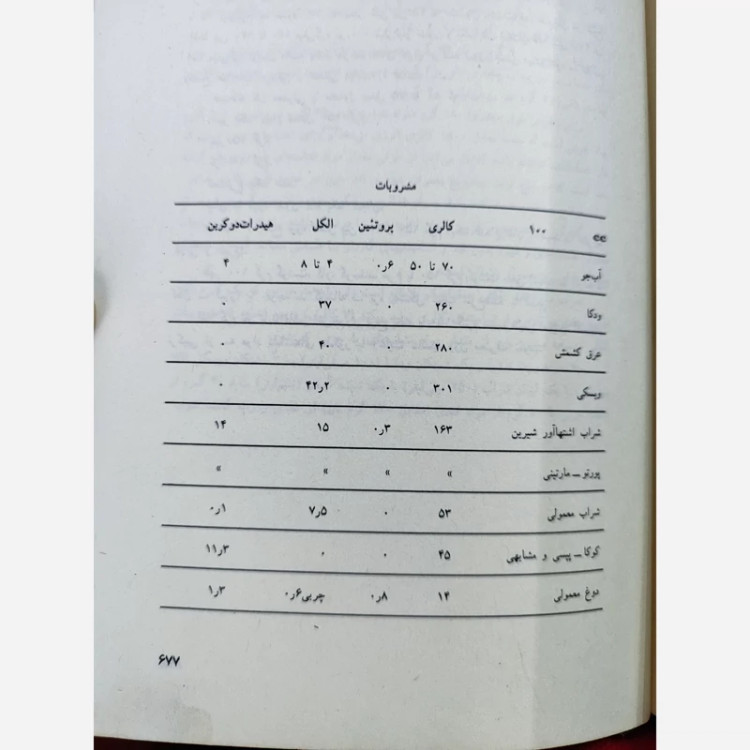 مشروبات
۱۰۰ cc کالری پروتئین الکل هیدرات‌دوکربن
آب‌جو ۷۰ تا ۵۰ ۰٫۶ ۴ تا ۸ ۴
ودکا ۲۶۰ ۰ ۳۷ ۰
عرق کشمش ۲۸۰ ۰ ۴۰ ۰
ویسکی ۳۰۱ ۰ ۴۲٫۲ ۰
شراب اشتهاآور شیرین ۱۶۳ ۰٫۳ ۱۵ ۱۴
پورتو ـ مارتینی » » » »
شراب معمولی ۵۳ ۰ ۷٫۵ ۰٫۱
کوکا ـ پپسی و مشابهی ۴۵ ۰ ۰ ۱۱٫۳
دوغ معمولی ۱۴ ۰٫۸ چربی ۰٫۶ ۱٫۳
۶۷۷